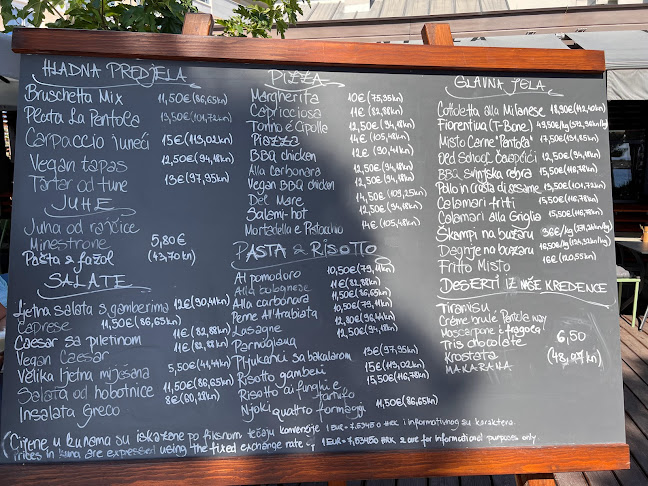 HLADNA PREDJELA
Bruschetta Mix 11,50€(86,65kn)
Plata La Pentola 13,50€(101,72kn)
Carpaccio juneći 15€(113,02kn)
Vegan tapas 12,50€(94,18kn)
Tartar od tune 13€(97,95kn)
JUHE
Juha od rajčice
Minestrone 5,80€
Pašta & fažol (43,70kn)
SALATE
Ljetna salata s gamberima 12€(90,41kn)
Caprese 11,50€(86,65kn)
Caesar sa piletinom 11€(82,88kn)
Vegan Caesar 11€(82,88kn)
Velika ljetna miješana 5,50€(41,44kn)
Salata od hobotnice 11,50€(86,65kn)
Insalata Greco 8€(60,28kn)
PIZZA
Margherita 10€(75,35kn)
Capricciosa 11€(82,88kn)
Tonno e Cipolle 12,50€(94,18kn)
Piazza 14€(105,48kn)
BBQ chicken 12€(90,41kn)
Alla carbonara 12,50€(94,18kn)
Vegan BBQ chicken 12,50€(94,18kn)
Del Mare 14,50€(109,25kn)
Salami-hot 12,50€(94,18kn)
Mortadella e Pistacchio 14€(105,48kn)
PASTA & RISOTTO
Al pomodoro 10,50€(79,11kn)
Alla bolognese 11€(82,88kn)
Alla carbonara 11,50€(86,65kn)
Penne All'Arabiata 10,50€(79,11kn)
Lasagne 12,80€(96,44kn)
Parmigiana 12,50€(94,18kn)
Pljukanci sa bakalarom 13€(97,95kn)
Risotto gamberi 15€(113,02kn)
Risotto ai funghi e tartufo 15,50€(116,78kn)
Njoki quattro formaggi 11,50€(86,65kn)
GLAVNA JELA
Cottoletta alla Milanese 18,90€(142,40kn)
Fiorentina (T-Bone)
Misto Carne "Pentola" 17,50€(131,85kn)
Old School Ćevapčići 12,50€(94,18kn)
BBQ svinjska rebra 15,50€(116,78kn)
Pollo in crosta di sesame 13,50€(101,72kn)
Calamari fritti 15,50€(116,78kn)
Calamari alla Griglia 15,50€(116,78kn)
Škampi na buzaru
Dagnje na buzaru
Fritto Misto 16€(120,55kn)
DESERTI IZ NAŠE KREDENCE
Tiramisu
Crème brule Pentola way
Mascarpone i fragola 6,50
Tris chocolate
Krostata
MAKARANA
(Cijene u kunama su iskazane po fiksnom tečaju konverzije 1 EUR = 7,53450 HRK i informativnog su karaktera.
Prices in kuna are expressed using the fixed exchange rate 1 EUR = 7,53450 HRK & are for informational purposes only